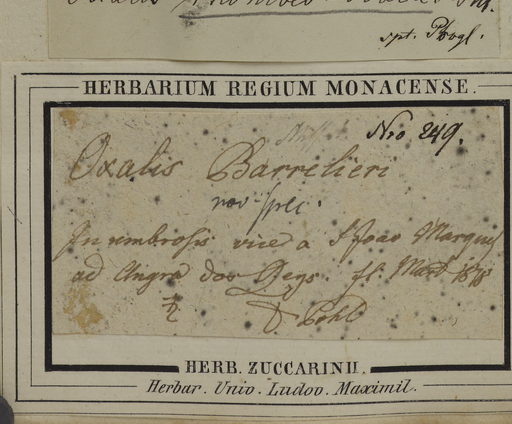 spt. Progl.
HERBARIUM REGIUM MONACENSE.
Nro 249.
Oxalis Barrelieri
nov spec.
In umbrosis vice a S Joao Marques
ad Angra dos Reys. fl. Mart
D Pohl
HERB. ZUCCARINII.
Herbar. Univ. Ludov. Maximil.